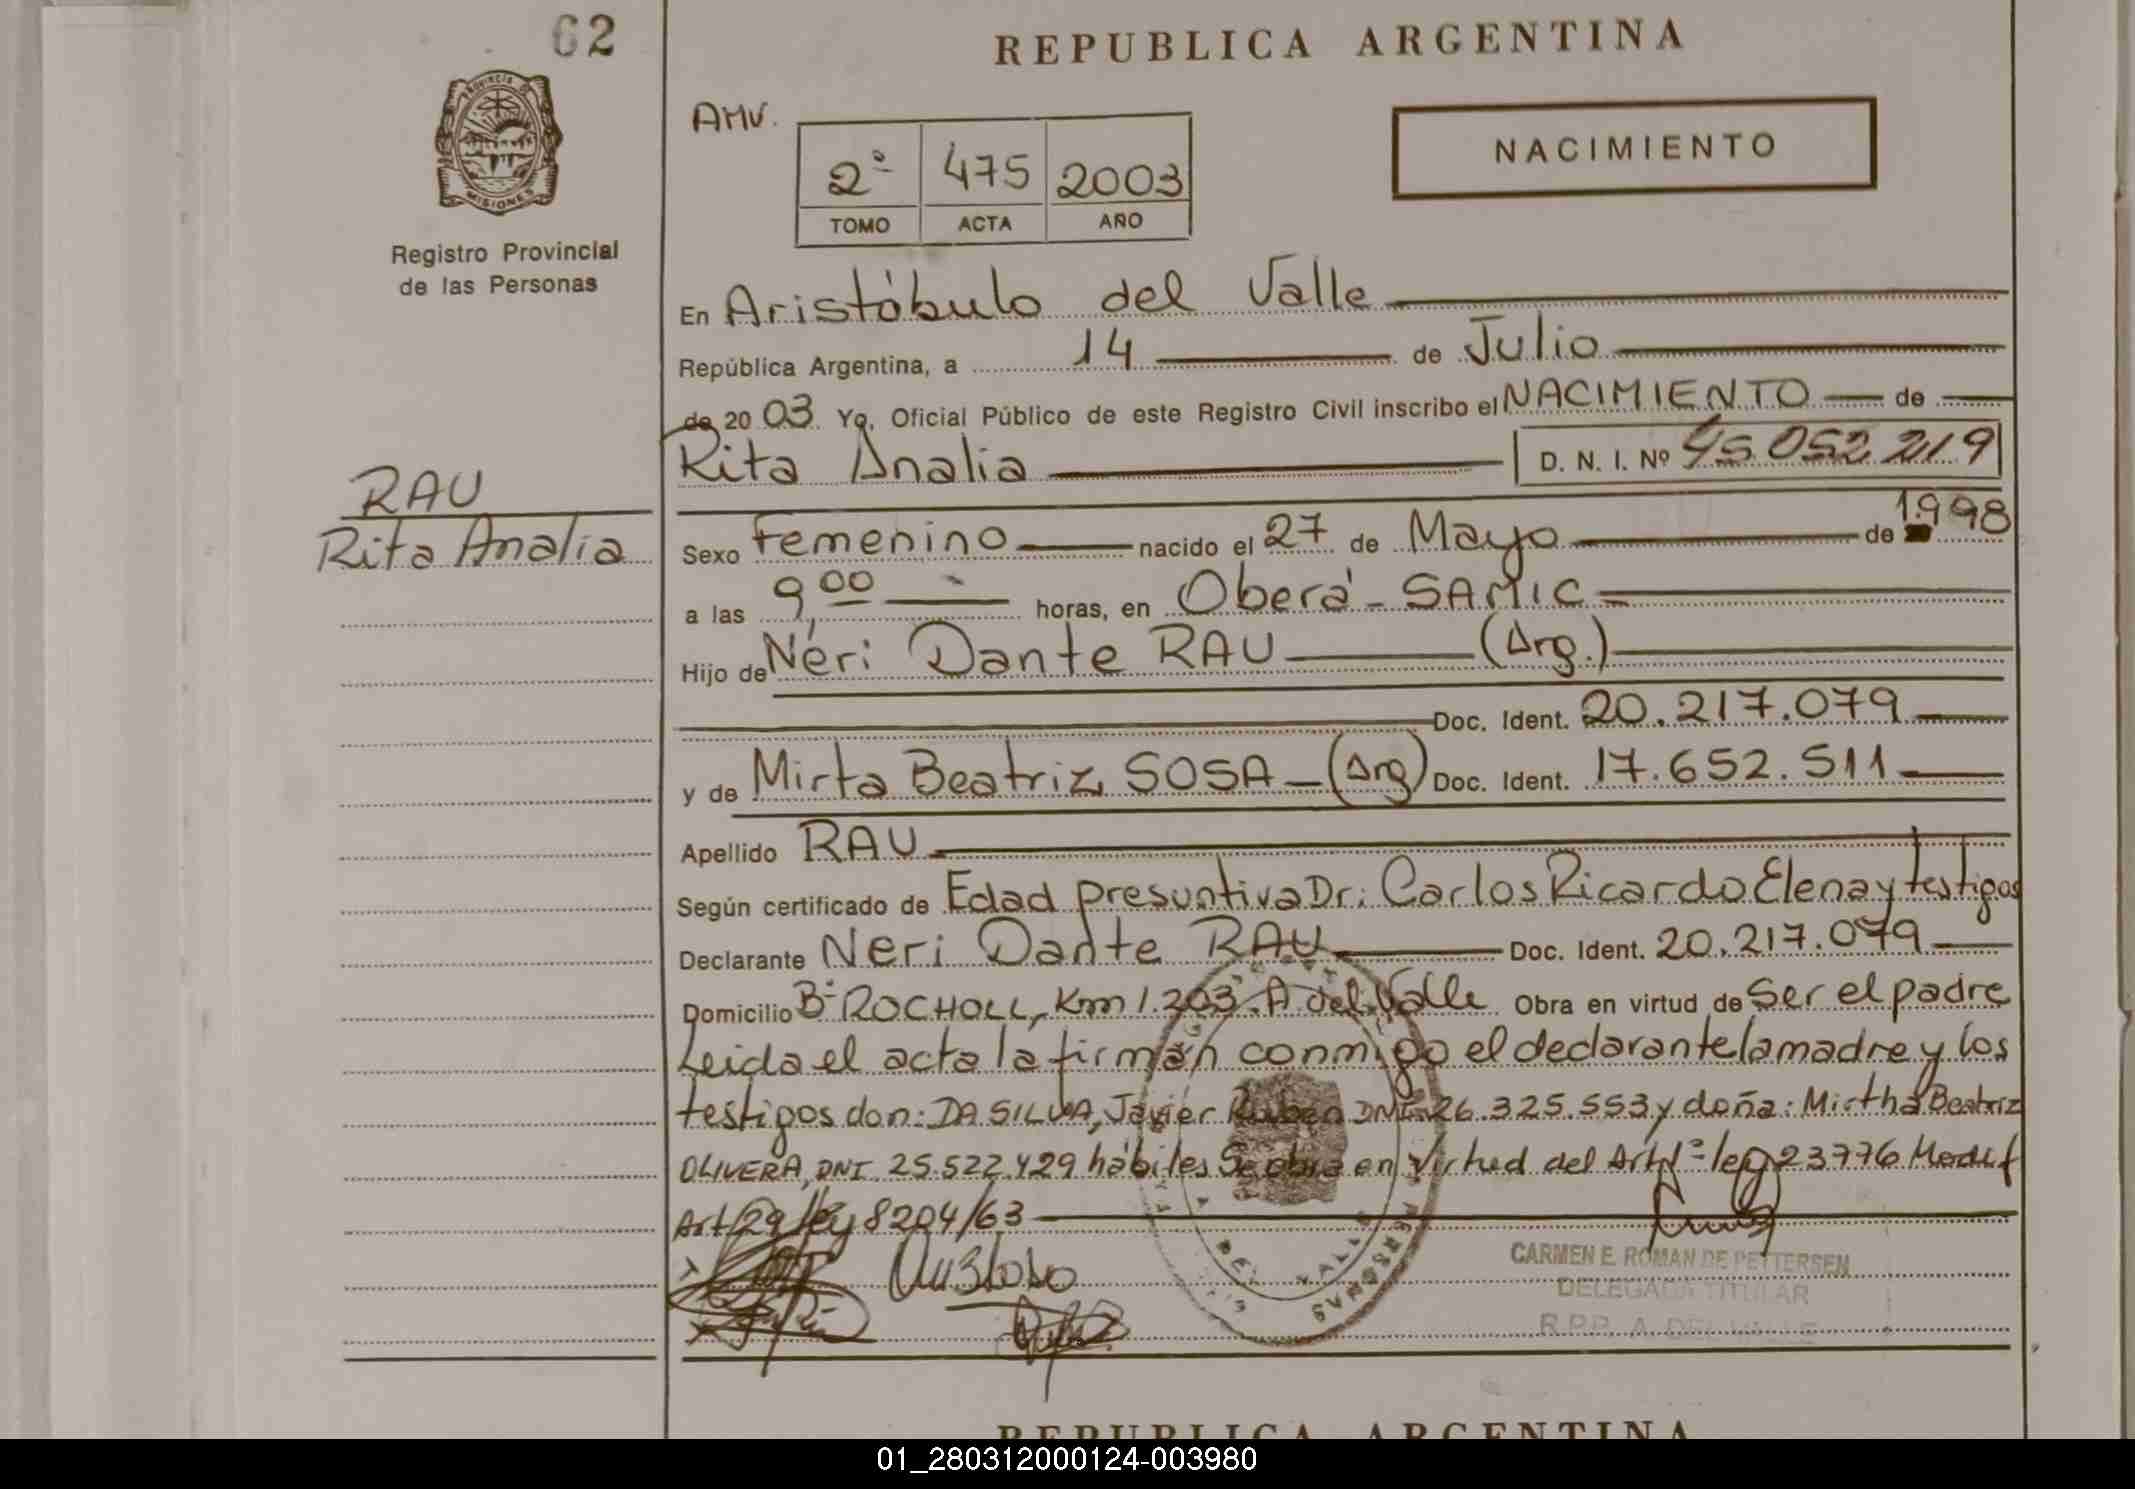 62
REPUBLICA ARGENTINA
PROVINCIA DE
MISIONES
Registro Provincial
de las Personas
AMV.
2º 475 2003
TOMO ACTA AÑO
NACIMIENTO
En Aristóbulo del Valle
República Argentina, a 14 de Julio
de 20 03 Yo, Oficial Público de este Registro Civil inscribo el NACIMIENTO de
Rita Analia D. N. I. Nº 45 052 219
RAU
Rita Analia
Sexo Femenino nacido el 27 de Mayo de 1998
a las 9,00 horas, en Oberá - SAMIC
Hijo de Neri Dante RAU (Arg.)
Doc. Ident. 20.217.079
y de Mirta Beatriz SOSA (Arg) Doc. Ident. 17.652.511
Apellido RAU
Según certificado de Edad presuntiva Dr: Carlos Ricardo Elena y testigos
Declarante Neri Dante RAU Doc. Ident. 20.217.079
Domicilio Bº ROCHOLL, Km 1.203. A del Valle Obra en virtud de Ser el padre
Leida el acta la firman conmigo el declarante la madre y los
testigos don: DA SILVA, Javier Ruben DNI. 26.325.553 y doña: Mirtha Beatriz
OLIVERA, DNI. 25.522.429 hábiles Se obra en virtud del Art Nº ley 23776 Modif
Art 29 ley 8204/63
CARMEN E. ROMAN DE PETTERSEN
DELEGADA TITULAR
R.P.P. A. DEL VALLE
REPUBLICA ARGENTINA
01_280312000124-003980